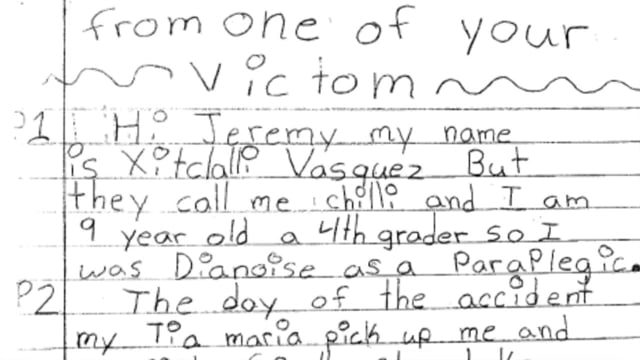 from one of your
Victom
P1 Hi Jeremy my name
is Xitclalli Vasquez But
they call me chilli and I am
9 year old a 4th grader so I
was Dianoise as a Paraplegic.
P2 The day of the accident
my Tia maria pick up me and